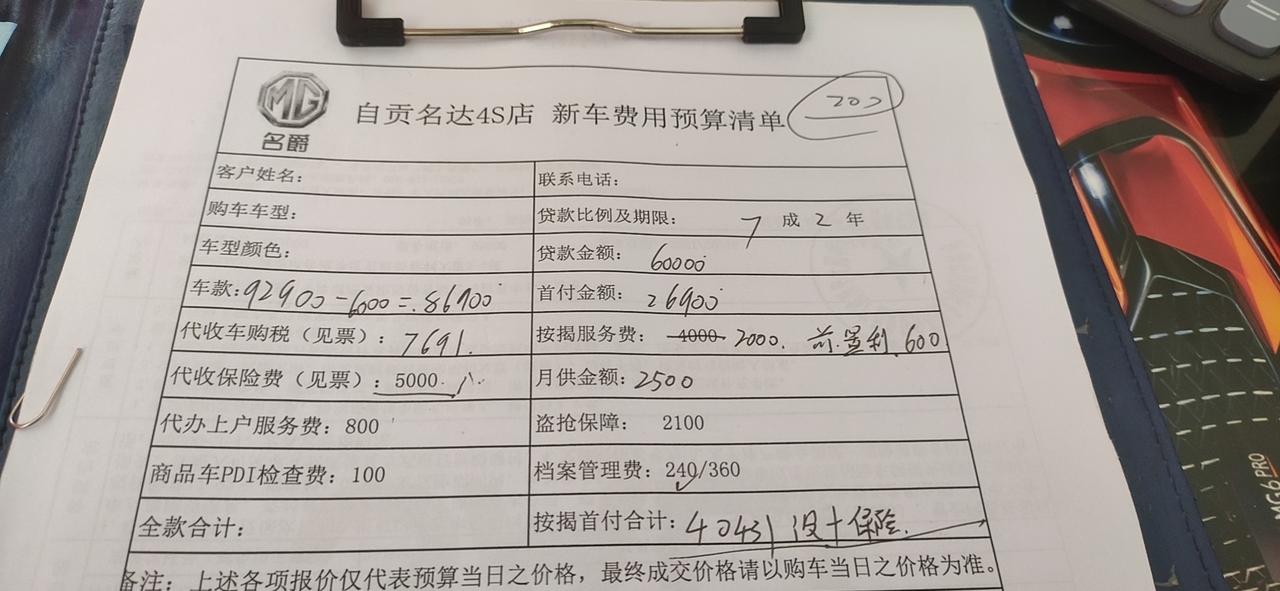 MG
名爵
自贡名达4S店 新车费用预算清单
客户姓名: 联系电话:
购车车型: 贷款比例及期限: 7 成 2 年
车型颜色: 贷款金额: 60000
车款: 92900-6000=86900 首付金额: 26900
代收车购税（见票）: 7691. 按揭服务费: 4000 2000. 前置利.600
代收保险费（见票）: 5000. 月供金额: 2500
代办上户服务费: 800 盗抢保障: 2100
商品车PDI检查费: 100 档案管理费: 240/360
全款合计: 按揭首付合计: 40431 没+保险.
备注: 上述各项报价仅代表预算当日之价格，最终成交价格请以购车当日之价格为准。
MG6 PRO